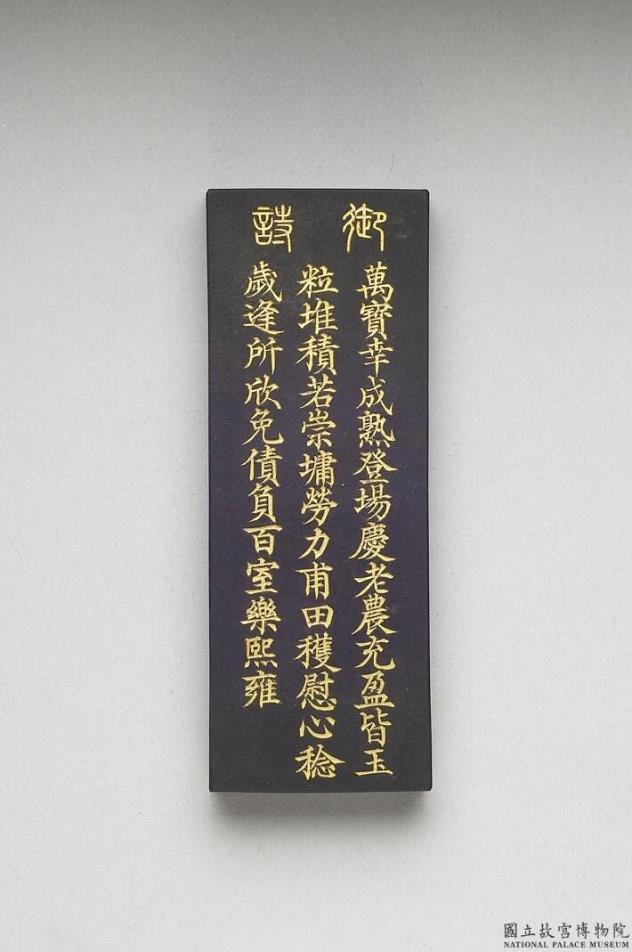 御詩
萬寶幸成熟登場慶老農充盈皆玉
粒堆積若崇墉勞力甫田穫慰心稔
歲逢所欣免債負百室樂熙雍
國立故宮博物院
NATIONAL PALACE MUSEUM